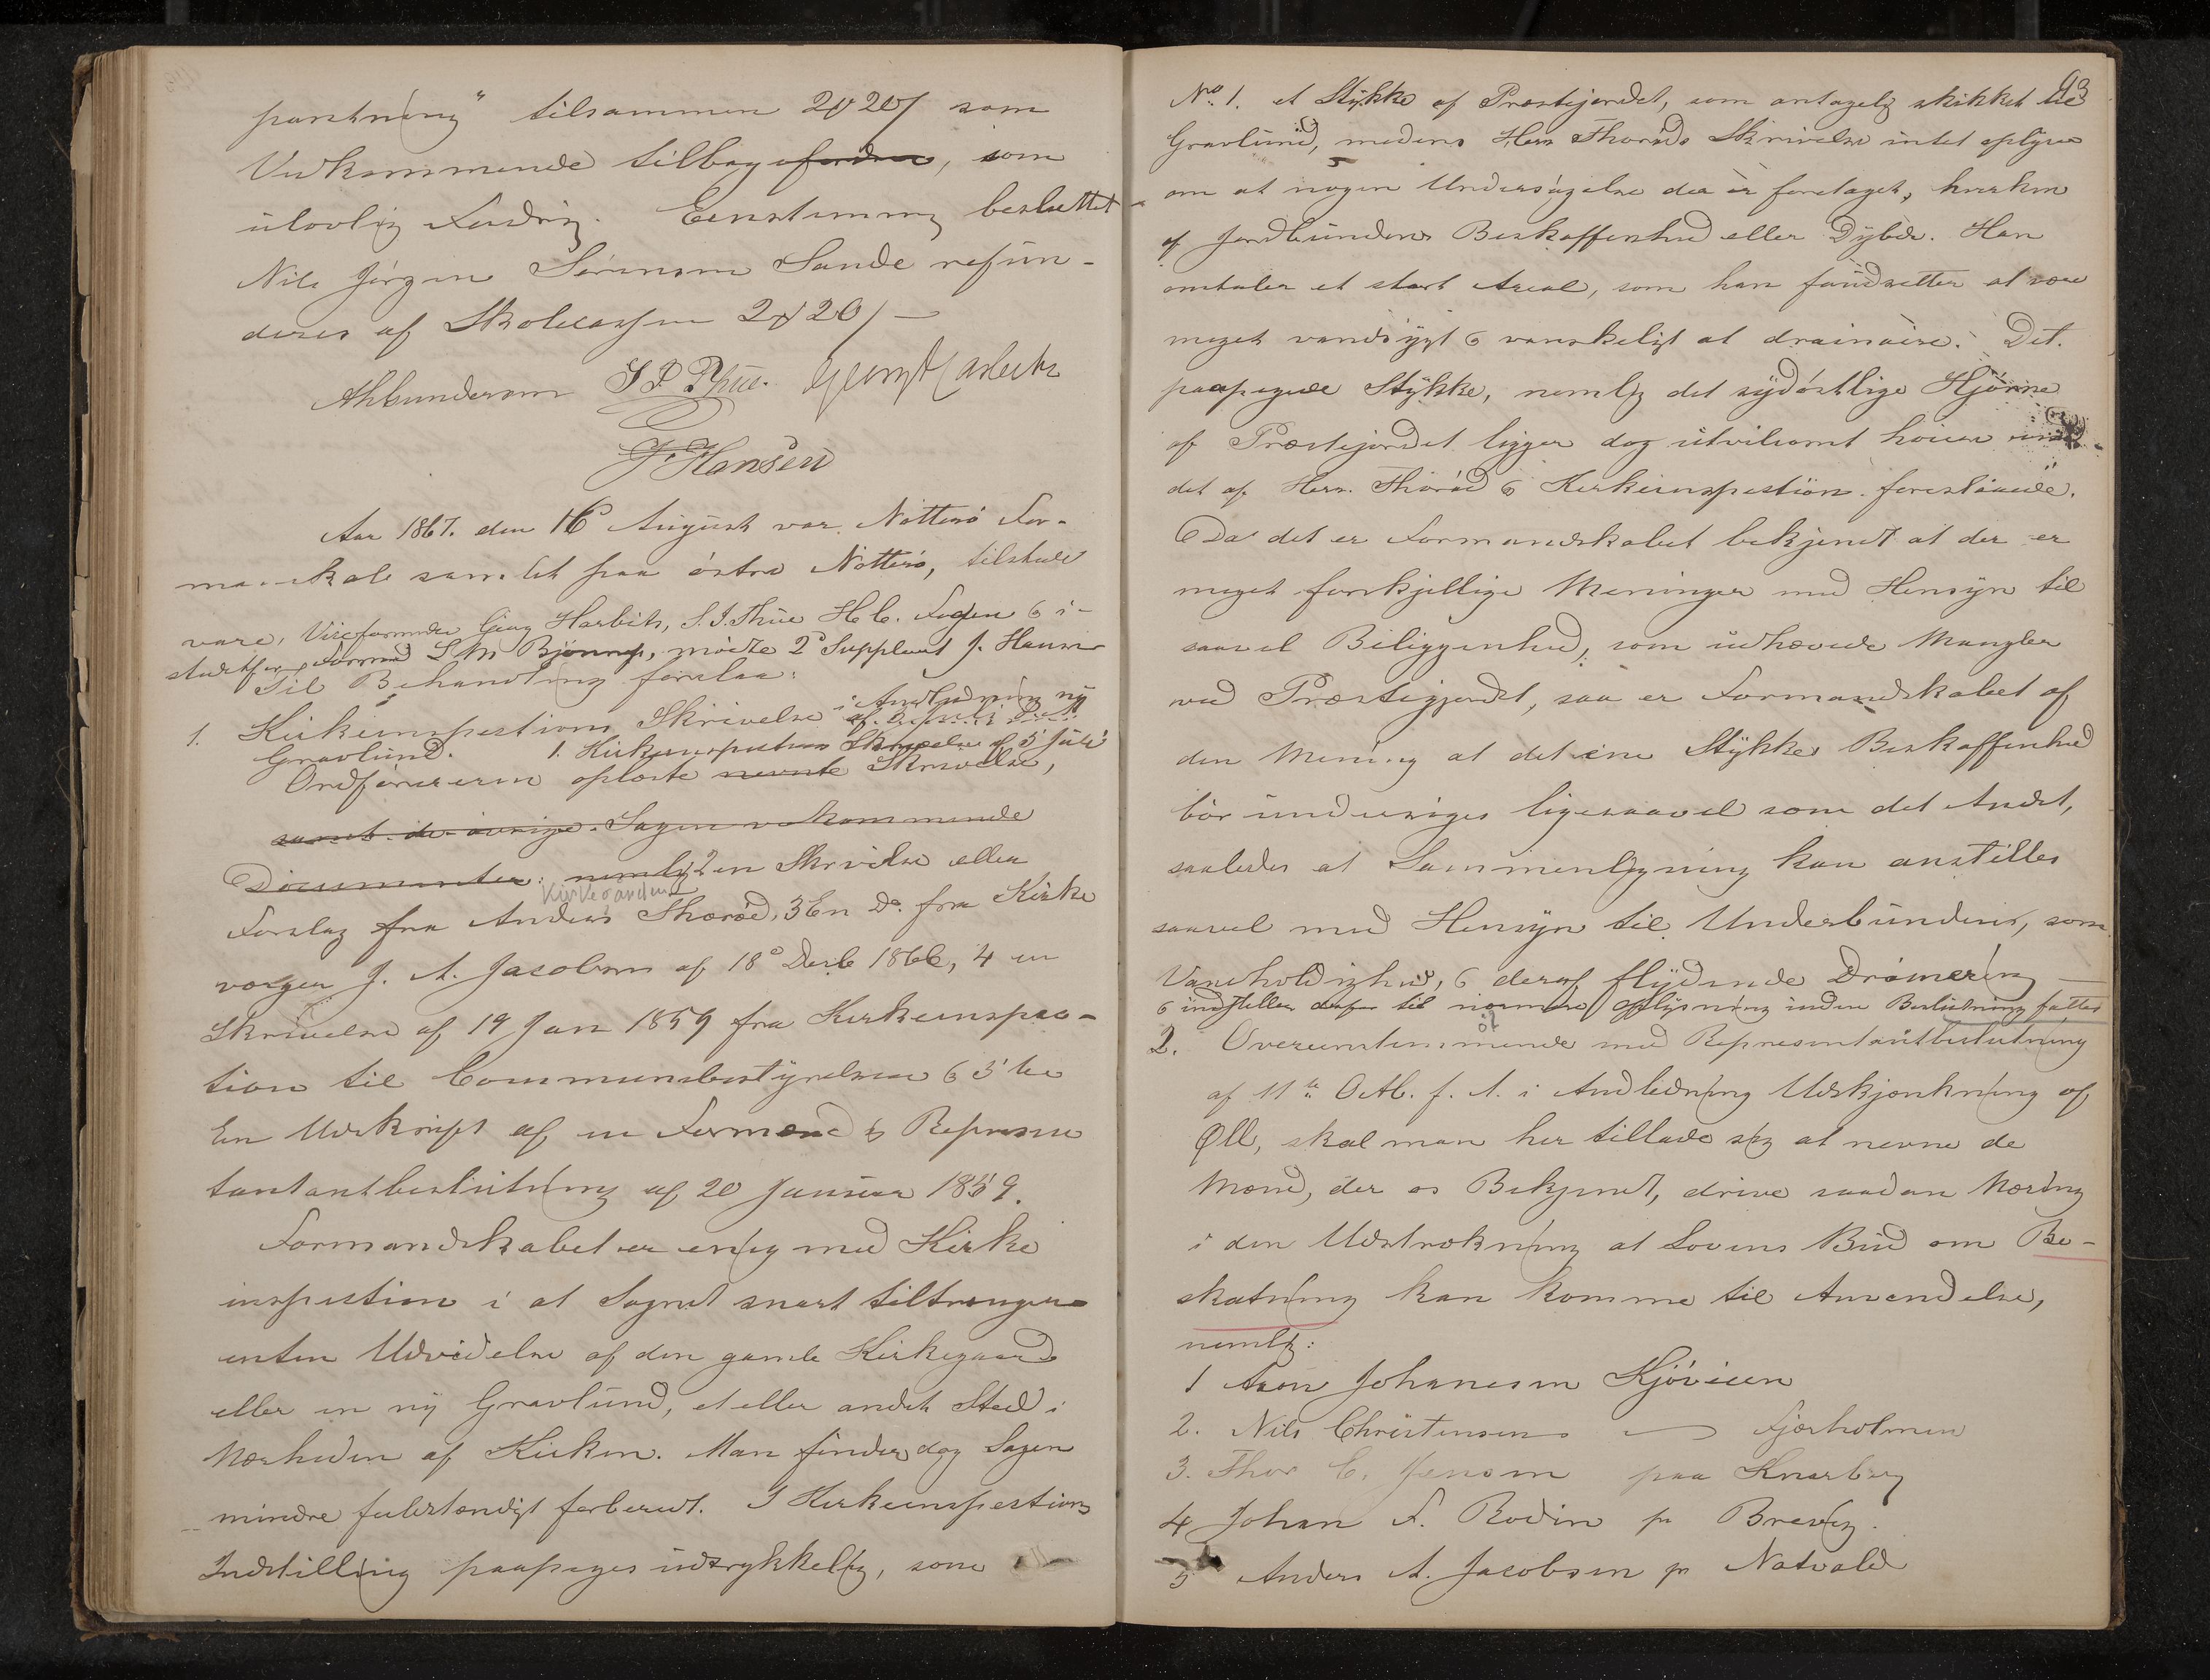 tilsammen 2 20 / som
Vedkommende tilbageforder, som
ulovlig Fordring. Eenstemmig besluttet
Nils Jørgen Sørensen Sande refun-
deres af Skolecassen 2 20 /
Ahbundersen S. I. Thue. Georg Harbitz
J. Hansen
Aar 1867. den 16 August var Nøtterø For-
mandskab samlet paa østre Nøtterø, tilstede
vare, Viceformder Georg Harbitz, S. I. Thue H. C. Fogen & i-
stedetfor Formand S M Bjønnes, mødte 2d Suppleant J. Hansen
Til Behandling forelaa:
1. Kirkeinspections Skrivelse i Andledning ny
Gravlund. 1. Kirkeinspections Skrivelse af 5 Juli
Ordføreren oplæste nevnte Skrivelse,
samt de øvrige Sagen vedkommende
Documenter: nemlig 2 en Skrivelse eller
Kirkesangeren
Forslag fra Anders Thorød, 3 En Do. fra Kirke
værgen J. A. Jacobsen af 18d Decb 1866, 4 en
Skrivelse af 19 Jan 1859 fra Kirkeinspec-
tion til Communebestyrelsen & 5te
En Udskrift af en Formænd & Represen
tantantbeslutning af 20 Januar 1859.
Formandskabet er enig med Kirke
inspection i at Sognet snart tiltrenger
enten Udvidelse af den gamle Kirkegaard
eller en ny Gravlund, et eller andet Sted i
Nærheden af Kirken. Man finder dog Sagen
mindre fuldstændigt forberedt. I Kirkeinspections
Indstilling paapeges udtrykkelig, som
93
No. 1. et Stykke af Præstejordet, som antagelig skikket til
Gravlund, medens Herr Thorøds Skrivelse intet oplyser
om at nogen Undersøgelse der er foretaget, hverken
af Jordbundens Beskaffenhed eller Dybde. Han
omtaler et stort Areal, som han forudsetter at være
meget vandsygt & vanskeligt at drainere. Det
paapegede Stykke, nemlig det sydøstlige Hjørne
af Præstejordet ligger dog utvilsomt høiere end
det af Herr. Thorød & Kirkeinspection foreslaaede.
Da det er Formandskabet bekjendt at der er
meget forskjellige Meninger med Hensyn til
saavel Beliggenhed, som udhævede Mangler
ved Præstegjordet, saa er Formandskabet af
den Mening at det ene Stykkes Beskaffenhed
bør undersøges ligesaavel som det Andet,
saaledes at Sammenligning kan anstilles
saavel med Hensyn til Underbundens, som
Vandholdighed, & deraf flydende Drainering
& indstiller derfor til nærmere Oplysning inden Beslutning fattes
2. Overeenstemmende med Representantbeslutning
af 11te Octb. f. A. i Andledning Udskjænkning af
Øll, skal man her tillade sig at nevne de
Mænd, der os Bekjendt, drive saadan Næring
i den Udstrækning at Lovens Bud om Be-
skatning kan komme til Anvendelse,
nemlig:
1 Aron Johanesen Kjøvieen
2. Nils Christensen Fjærholmen
3. Thor C. Jensen paa Knarberg
4 Johan F. Bodin pr Brevig.
5 Anders A. Jacobsen pr Natvald